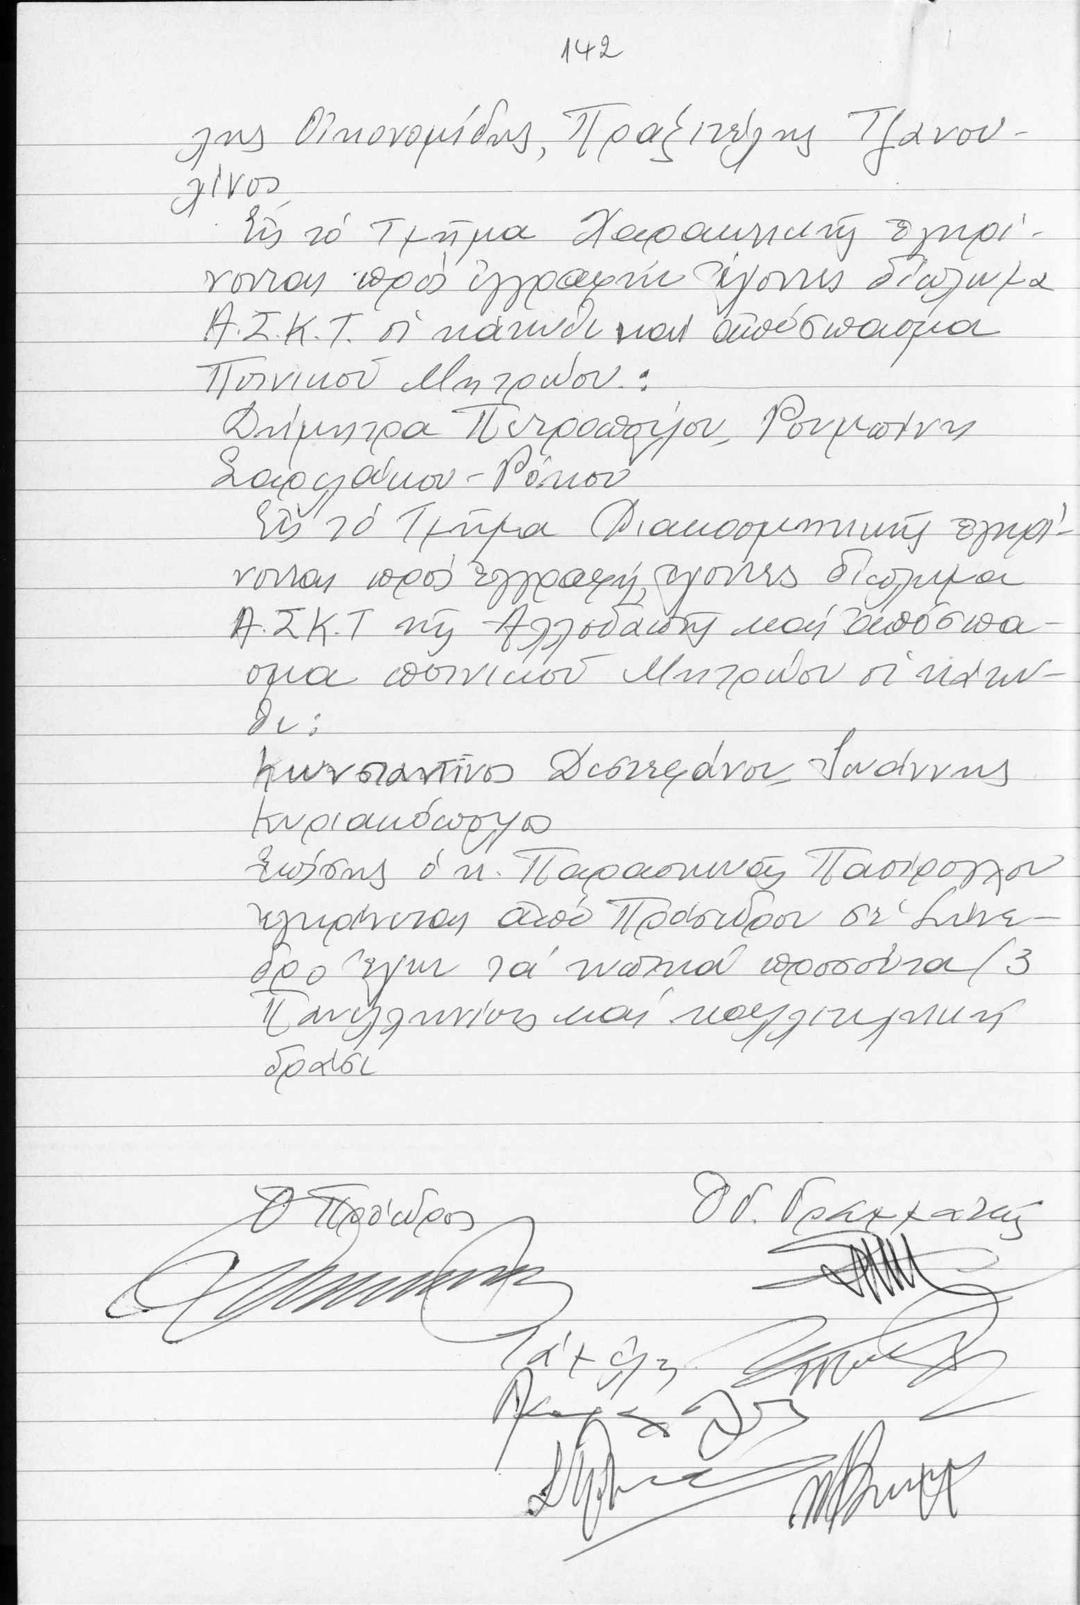 142
λης Οἰκονομίδης, Πραξιτέλης Τζανου-
λίνος
Εἰς τό Τμῆμα Χαρακτικῆς ἐγκρί-
νονται πρός ἐγγραφήν ἔχοντες δίπλωμα
Α.Σ.Κ.Τ. οἱ κάτωθι καί ἀπόσπασμα
Ποινικοῦ Μητρώου:
Δήμητρα Πετροπούλου, Ρουμπίνη
Σαρελάκου-Ρόκου
Εἰς τό Τμῆμα Διακοσμητικῆς ἐγκρί-
νονται πρός ἐγγραφή, ἔχοντες δίπλωμα
Α.Σ.Κ.Τ τῆς Ἀλλοδαπῆς καί ἀπόσπα-
σμα ποινικοῦ Μητρώου οἱ κάτω-
θι:
Κωνσταντῖνος Δεστεφάνου, Ἰωάννης
Κυριακόπουλος
Ἐπίσης ὁ κ. Παρασκευᾶς
ἐγκρίνεται ἀπό Πρόσεδρον σέ Σύνε-
δρο ἔχει τά τυπικά προσόντα/3
Πανελληνίους καί καλλιτεχνική
δράσι
Ὁ Πρόεδρος
Ὁ Γ. Γραμματεύς
Τά μέλη